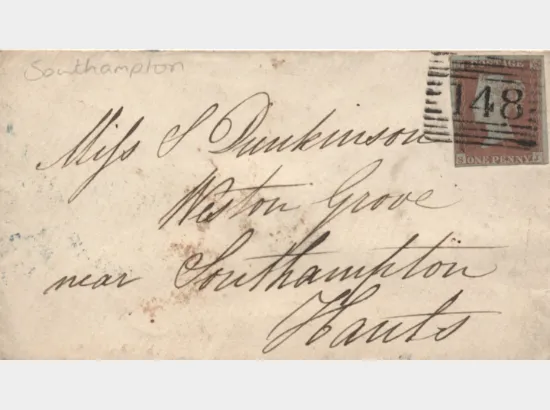 Southampton
POSTAGE
148
ONE PENNY
Miss S Dunkinson
Weston Grove
near Southampton
Hants